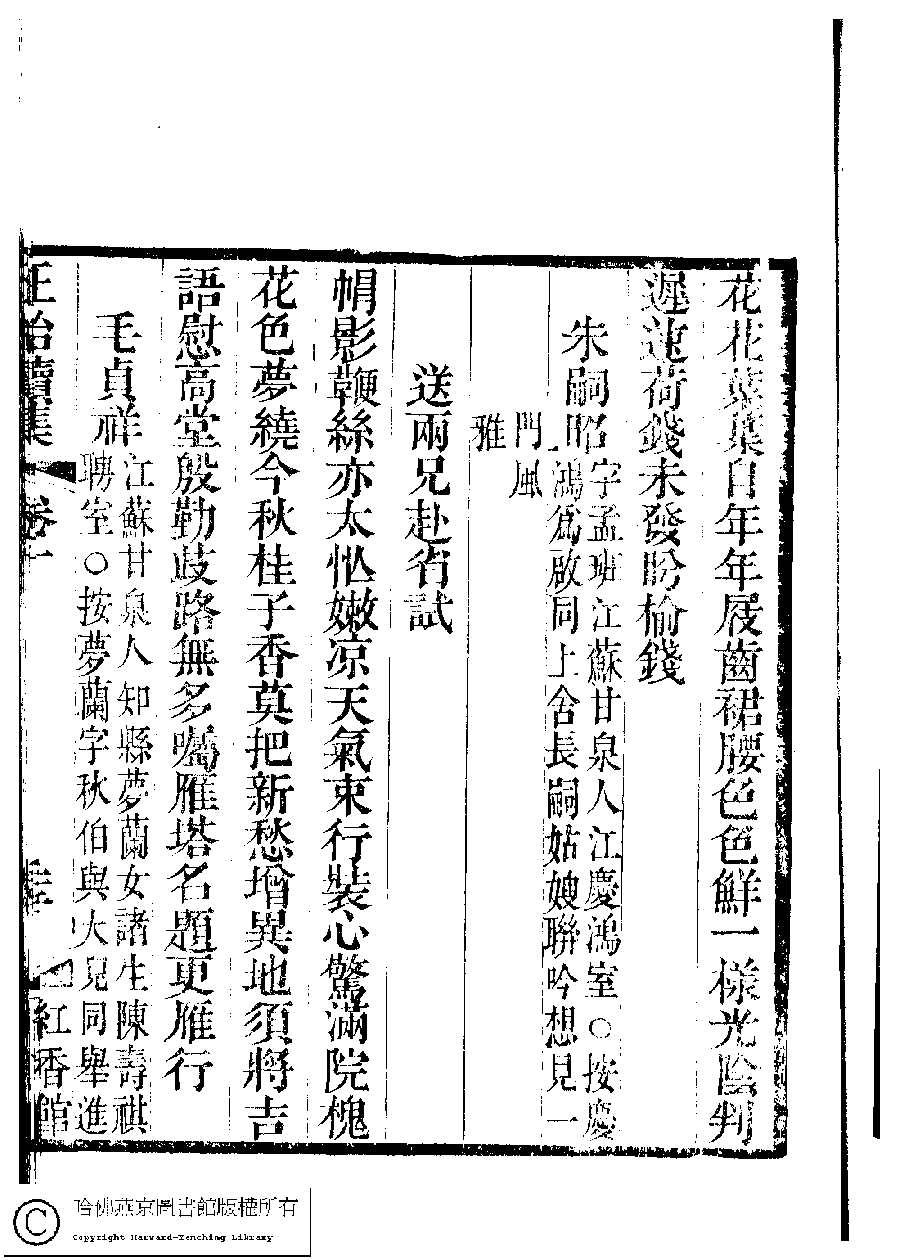 花花葉葉自年年屐齒裙腰色色鮮一樣光陰判
遲速荷錢未發盼榆錢
朱嗣昭
字孟班江蘇甘泉人江慶鴻室○按慶
鴻爲啟同上舍長嗣姑嫂聯吟想見一
門風
雅
送兩兄赴省試
帩影鞭絲亦太忙嫩凉天氣束行裝心驚滿院槐
花色夢繞今秋桂子香莫把新愁增異地須將吉
語慰高堂殷勤歧路無多囑雁塔名題更雁行
毛貞祥
江蘇甘泉人知縣夢蘭女諸生陳壽祺
聘室○按夢蘭字秋伯與大兒同舉進
正始續集
卷十
紅香館
哈佛燕京圖書館版權所有
Copyright Harvard-Yenching Library